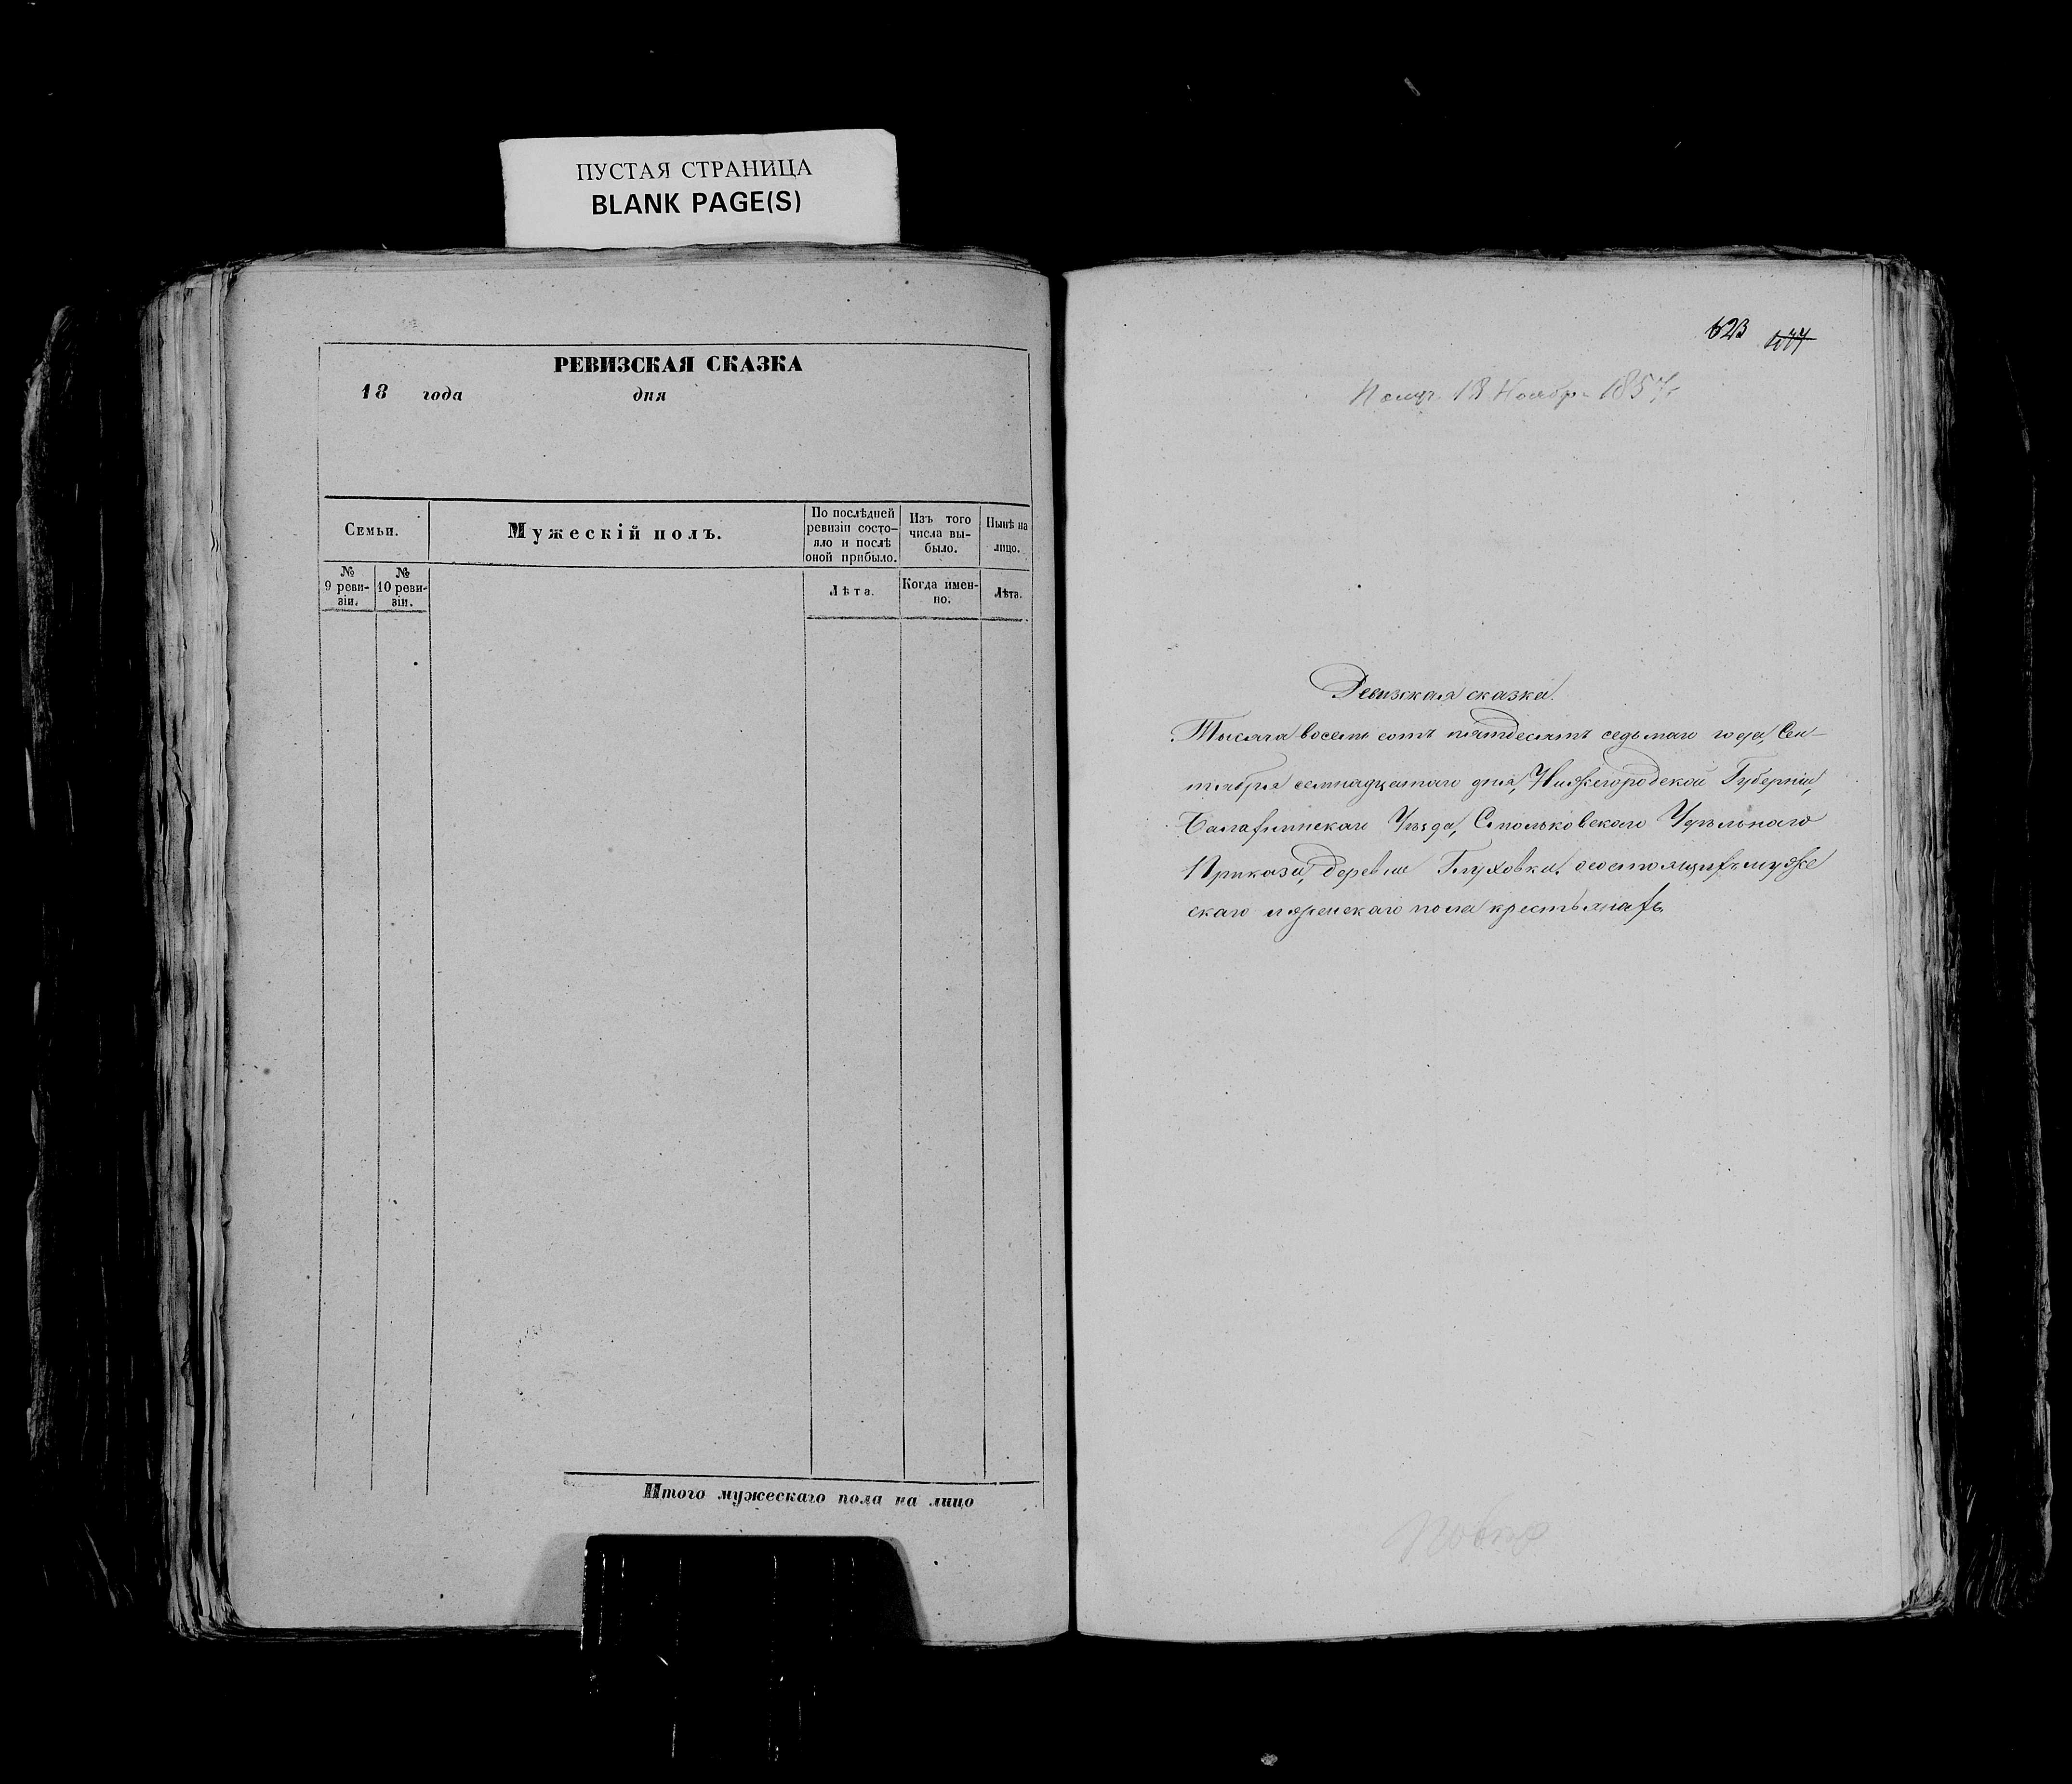 ПУСТАЯ СТРАНИЦА
BLANK PAGE(S)
РЕВИЗСКАЯ СКАЗКА
18 года дня
Семьи.
Мужескій полъ.
По послѣдней
ревизіи состо-
яло и послѣ
оной прибыло.
Изъ того
числа вы-
было.
Нынѣ на
лицо.
№
9 реви-
зіи.
№
10 реви-
зіи.
Лѣта.
Когда имен-
но.
Лѣта.
Итого мужескаго пола на лицо
623
Получ. 18 Ноябр. 1857 г.
Ревизская сказка.
Тысяча восемь сотъ пятдесятъ седьмаго года, Сен-
тября семнадцатаго дня, Нижегородской Губерніи,
Балахнинскаго Уѣзда, Смольковскаго Удѣльнаго
Приказа, деревни Глуховки, о состоящихъ муже
скаго и женскаго пола крестьянахъ.